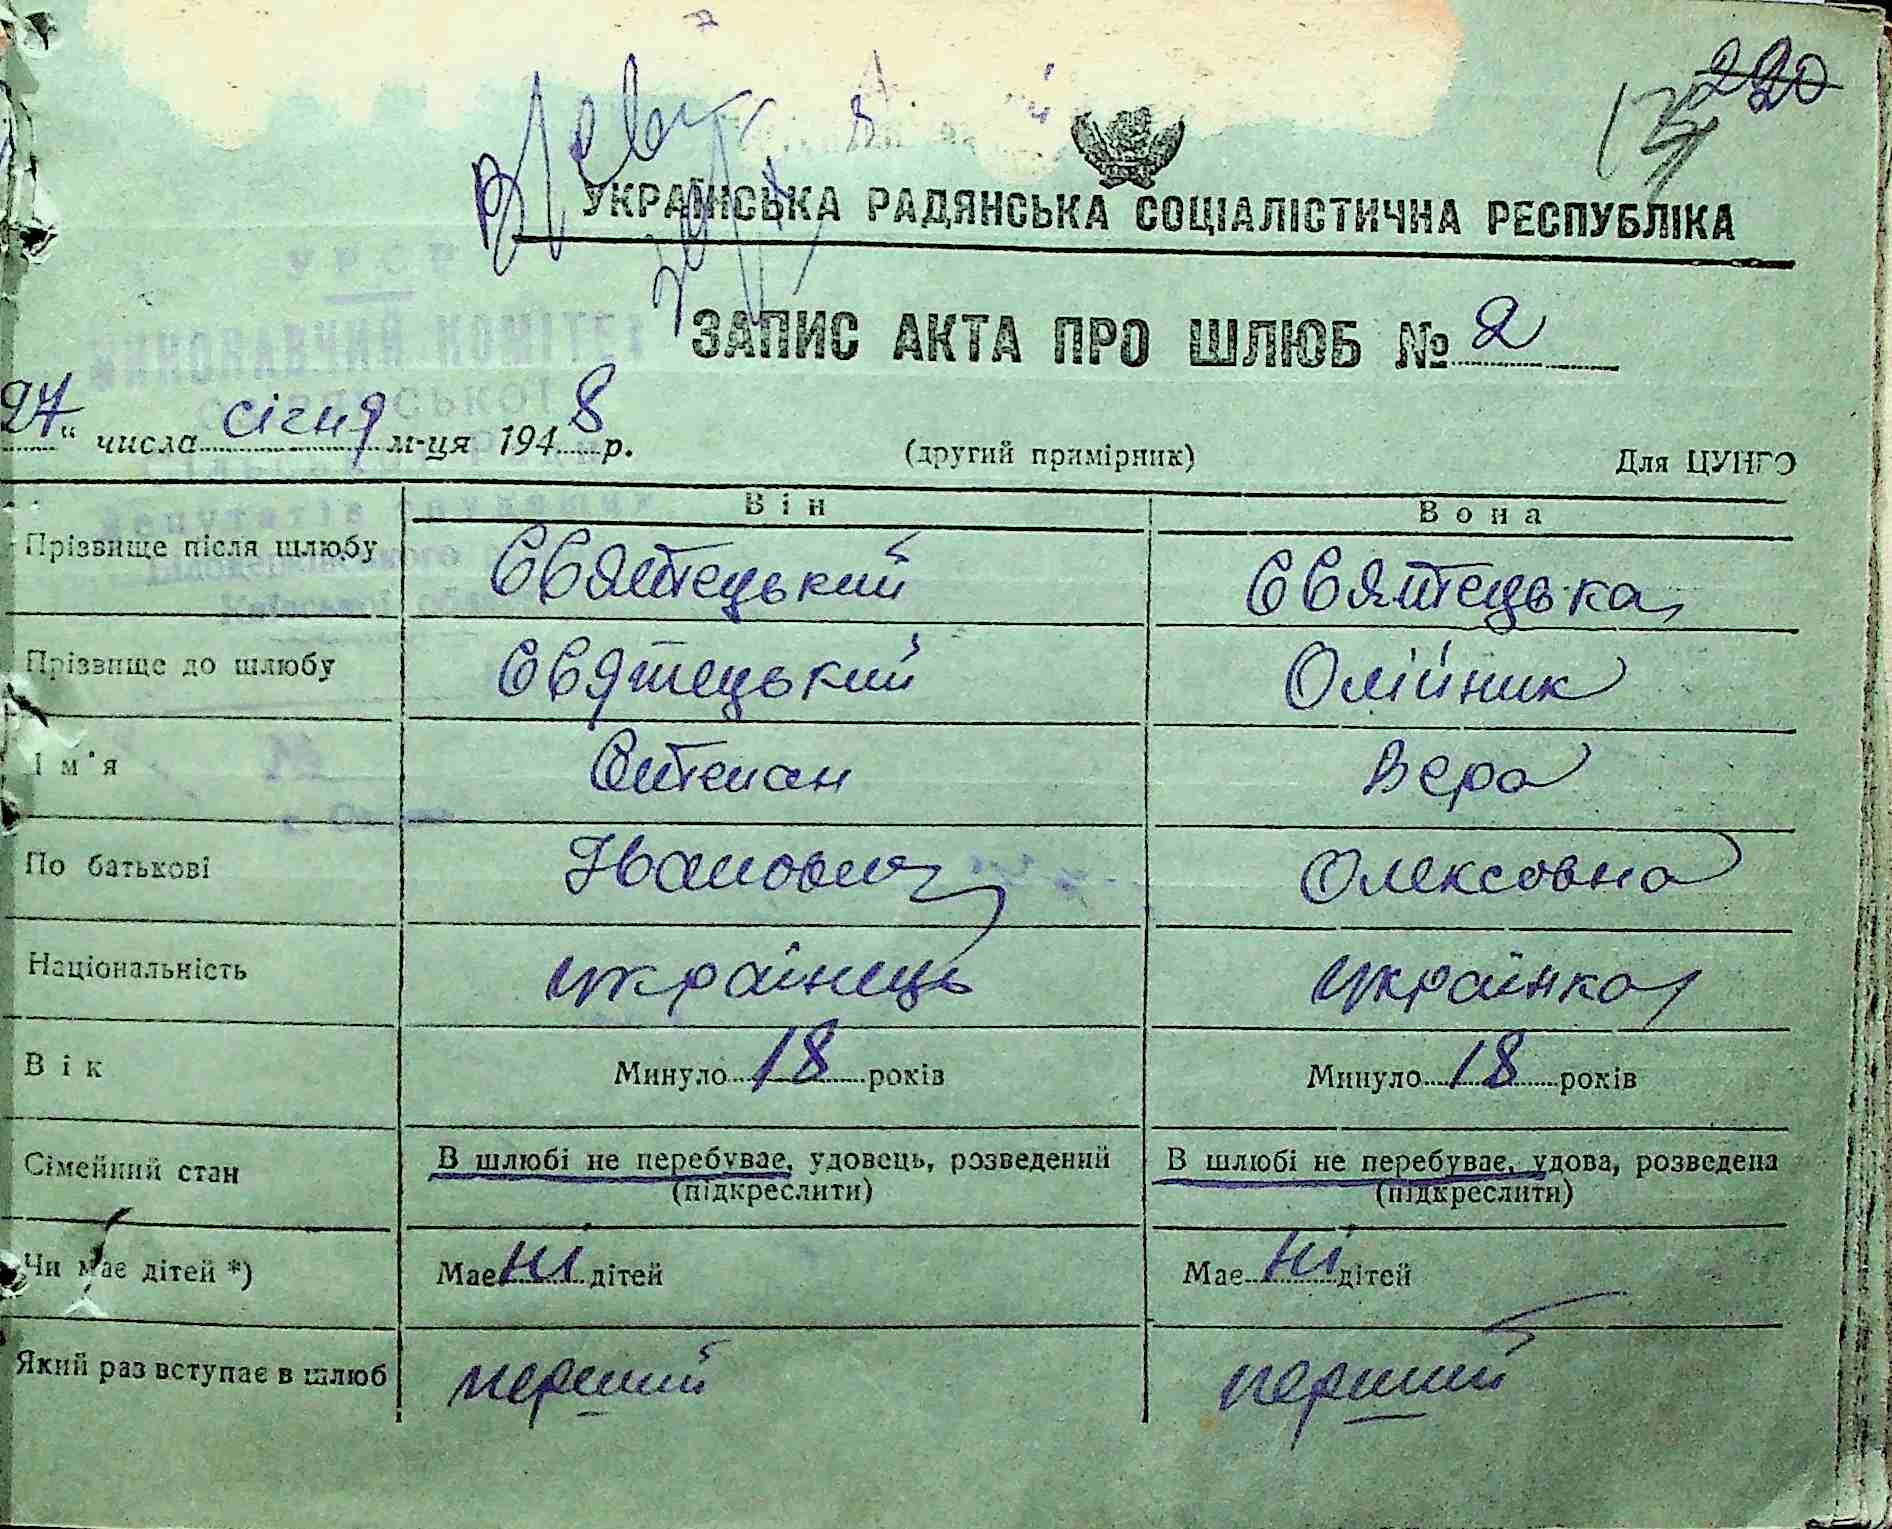 220
УКРАЇНСЬКА РАДЯНСЬКА СОЦІАЛІСТИЧНА РЕСПУБЛІКА
УРСР
ВИКОНАВЧИЙ КОМІТЕТ
ЗАПИС АКТА ПРО ШЛЮБ № 2
27 " числа січня м-ця 1948 р. (другий примірник) Для ЦУНГО
Він Вона
Прізвище після шлюбу Святецький Святецька
Прізвище до шлюбу Святецький Олійник
Ім'я Степан Вера
По батькові Іванович Олексовна
Національність українець українка
Вік Минуло 18 років Минуло 18 років
Сімейний стан В шлюбі не перебуває, удовець, розведений В шлюбі не перебуває, удова, розведена
(підкреслити) (підкреслити)
Чи має дітей *) Має ні дітей Має ні дітей
Який раз вступає в шлюб перший перший